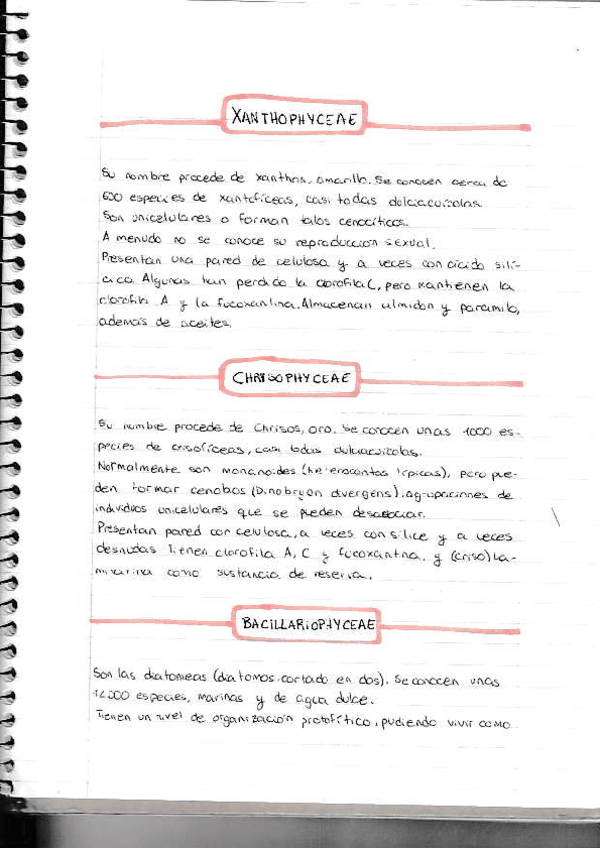 XANTHOPHYCEAE
Su nombre procede de xanthos, amarillo. Se conocen cerca de
600 especies de xantofíceas, casi todas dulciacuícolas.
Son unicelulares o forman talos cenocíticos.
A menudo no se conoce su reproducción sexual.
Presentan una pared de celulosa y a veces con ácido silí-
cico. Algunas han perdido la clorofila C, pero mantienen la
clorofila A y la fucoxantina. Almacenan almidon y paramilo,
además de aceites.
CHRYSOPHYCEAE
Su nombre procede de Chrisos, oro. Se conocen unas 1000 es-
pecies de crisofíceas, casi todas dulciacuícolas.
Normalmente son monanoides (heterocontas típicas), pero pue-
den formar cenobios (Dinobryon divergens), agrupaciones de
individuos unicelulares que se pueden desasociar.
Presentan pared con celulosa, a veces con sílice y a veces
desnudas. Tienen clorofila A, C y fucoxantina. y (criso)la-
minarina como sustancia de reserva.
BACILLARIOPHYCEAE
Son las diatomeas (diatomos: cortado en dos). Se conocen unas
12.000 especies, marinas y de agua dulce.
Tienen un nivel de organización protofítico, pudiendo vivir como